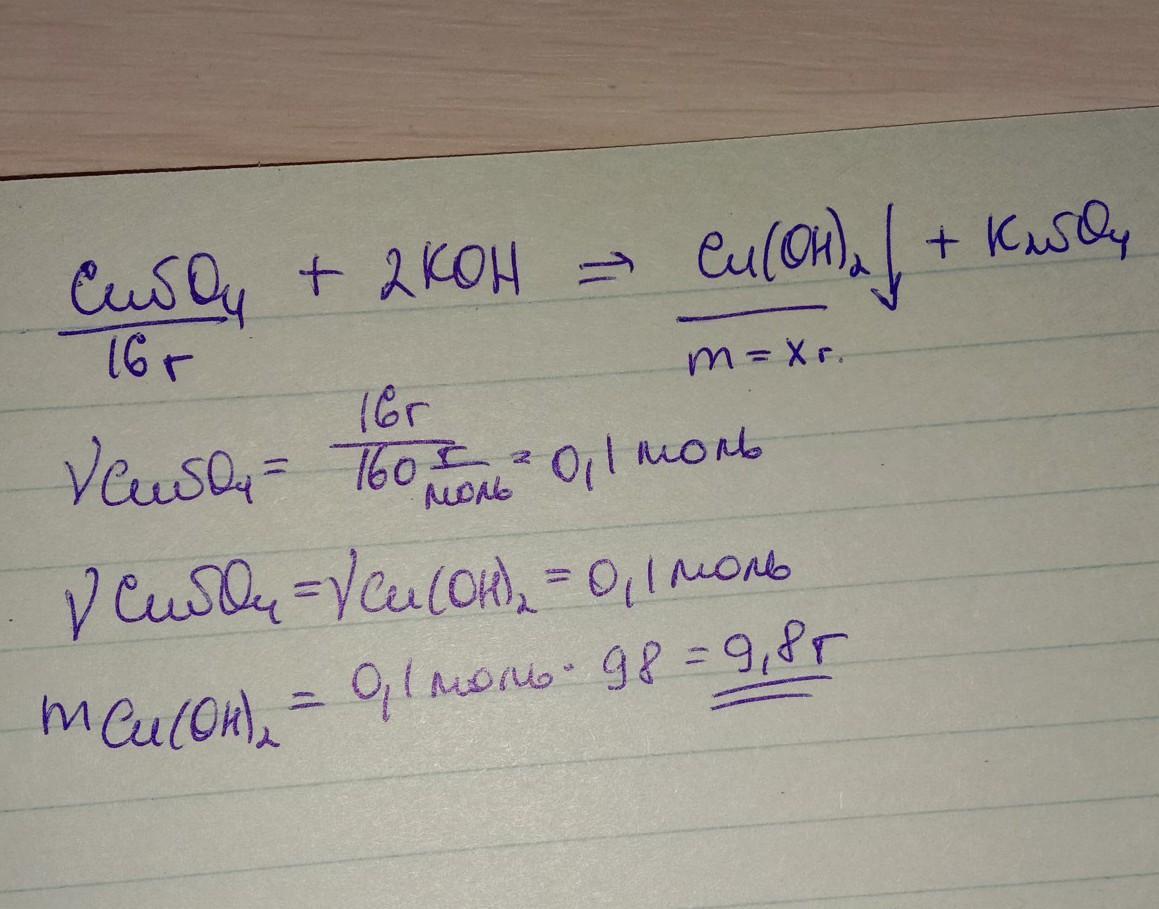 CuSO₄ + 2KOH ⇒ Cu(OH)₂↓ + K₂SO₄
16г m = x г.
νCuSO₄ = 16г / 160 г/моль = 0,1 моль
νCuSO₄ = νCu(OH)₂ = 0,1 моль
mCu(OH)₂ = 0,1 моль · 98 = 9,8 г